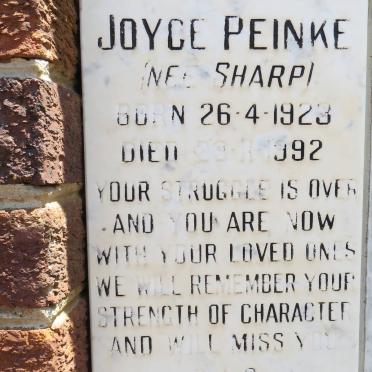 JOYCE PEINKE
(NEE SHARP)
BORN 26-4-1923
DIED 1992
YOUR STRUGGLE IS OVER
AND YOU ARE NOW
WITH YOUR LOVED ONES
WE WILL REMEMBER YOUR
STRENGTH OF CHARACTER
AND WILL MISS YOU